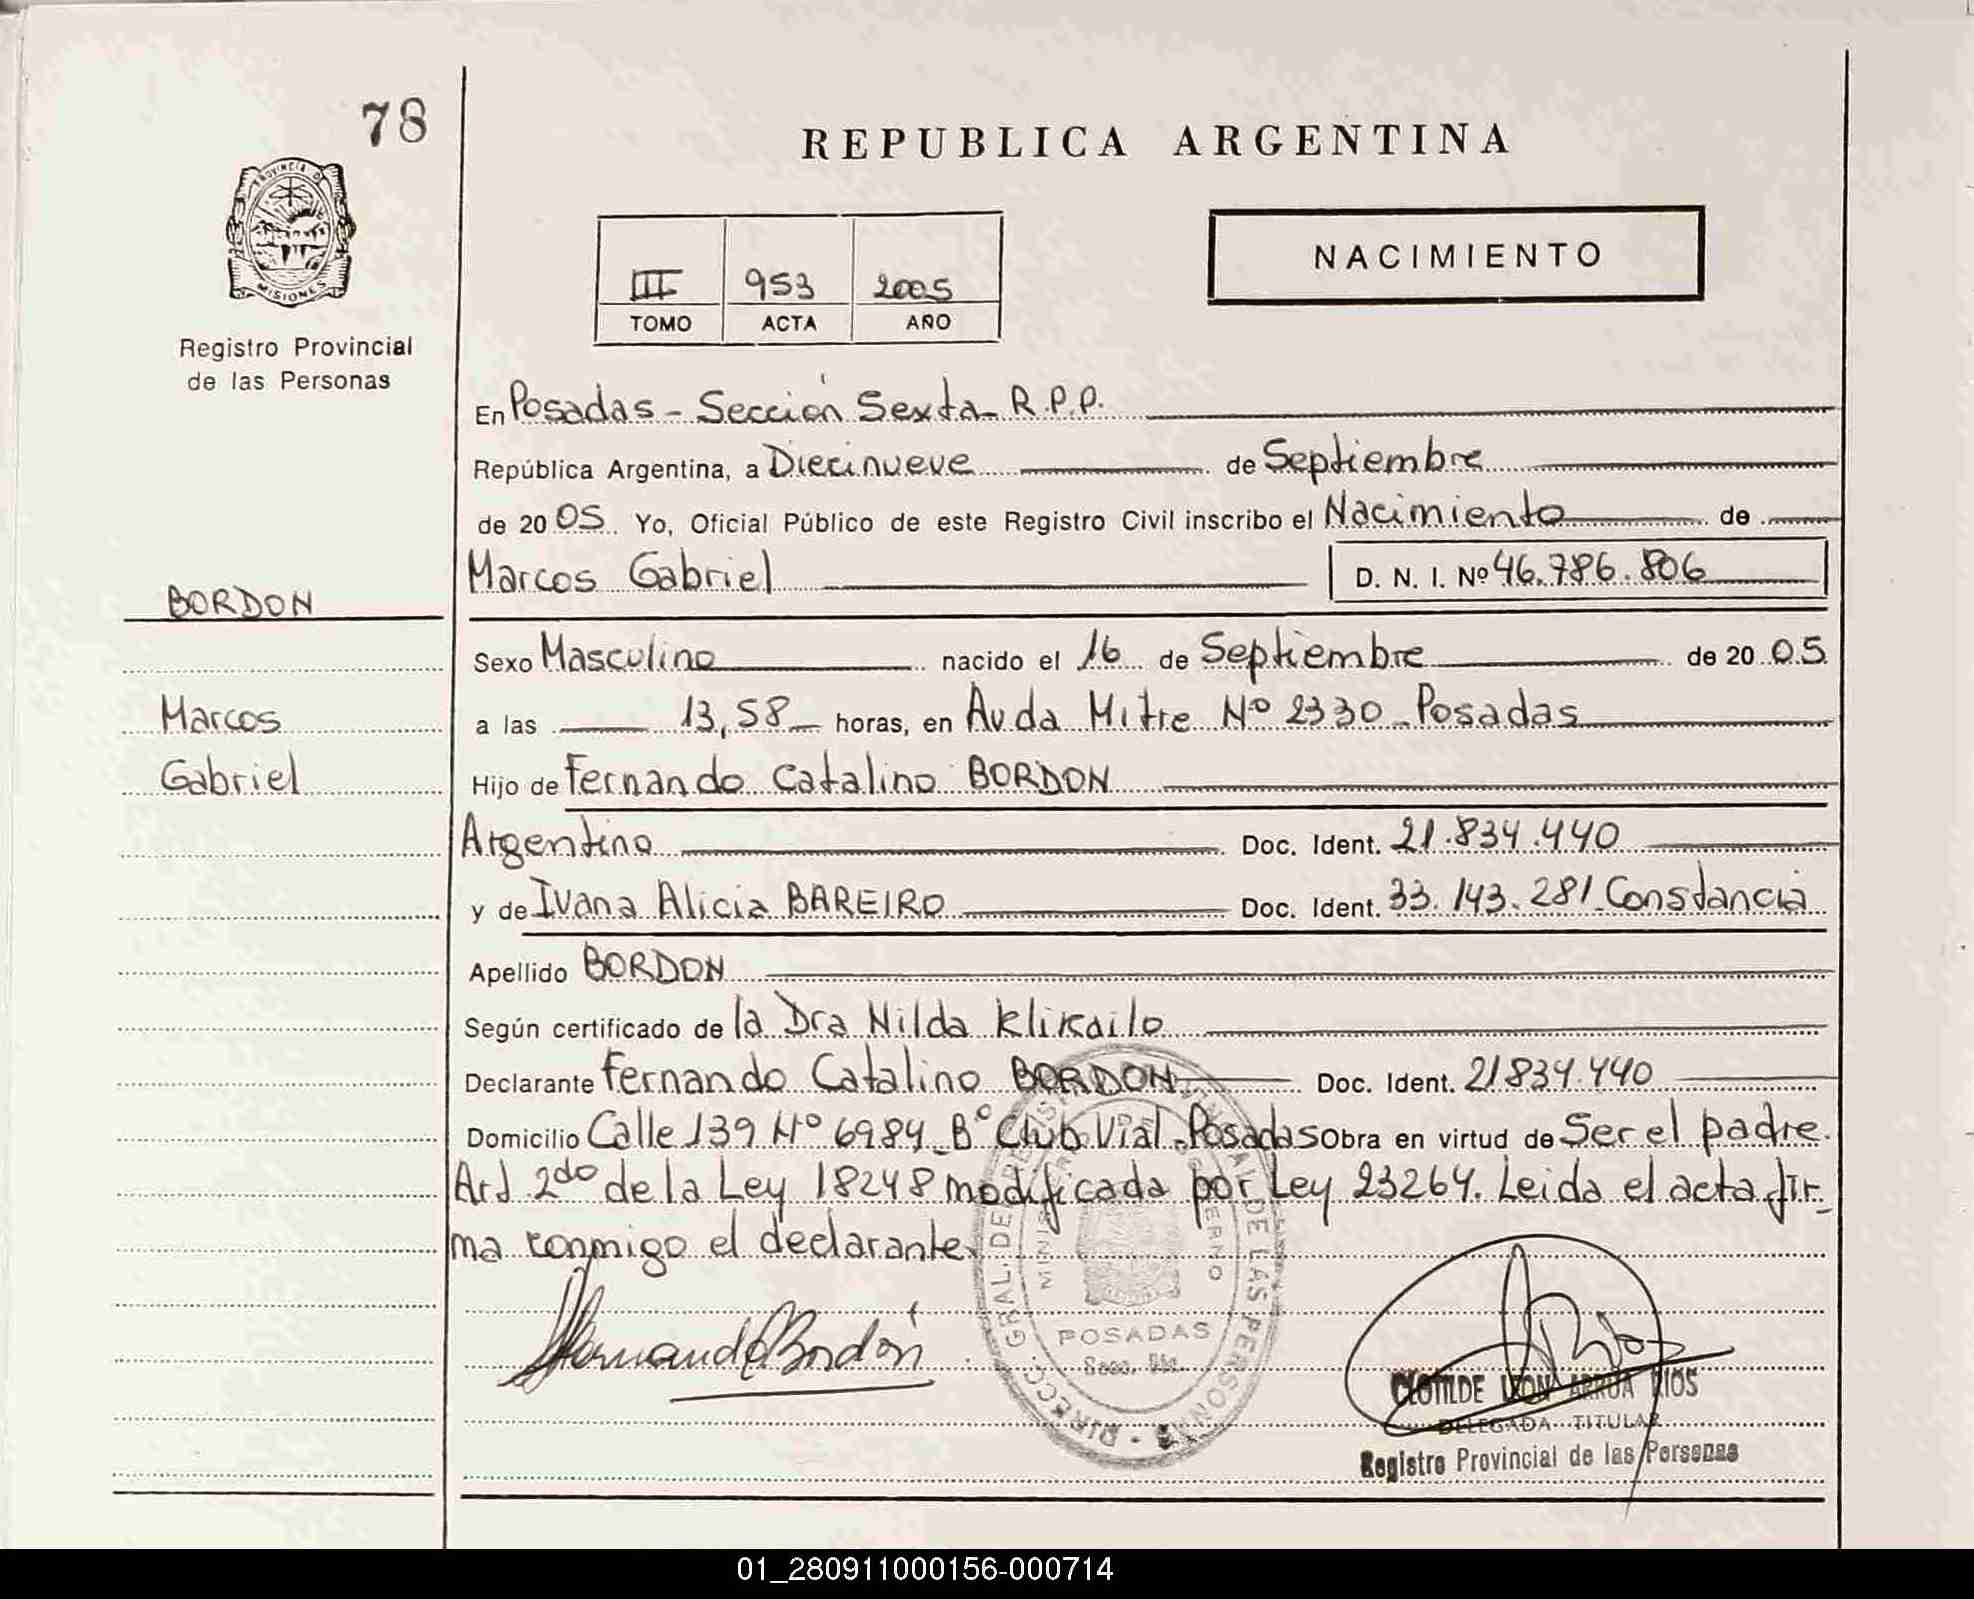 78
PROVINCIA D
MISIONES
Registro Provincial
de las Personas
REPUBLICA ARGENTINA
III 953 2005
TOMO ACTA AÑO
NACIMIENTO
En Posadas - Sección Sexta R.P.P.
República Argentina, a Diecinueve de Septiembre
de 2005. Yo, Oficial Público de este Registro Civil inscribo el Nacimiento de
Marcos Gabriel D. N. I. Nº 46.786.806
BORDON
Sexo Masculino nacido el 16 de Septiembre de 2005
Marcos
a las 13,58 horas, en Avda Mitre Nº 2330 - Posadas
Gabriel
Hijo de Fernando Catalino BORDON
Argentino Doc. Ident. 21.834.440
y de Ivana Alicia BAREIRO Doc. Ident. 33.143.281 Constancia
Apellido BORDON
Según certificado de la Dra Nilda Klikailo
Declarante Fernando Catalino BORDON Doc. Ident. 21834.440
Domicilio Calle 139 Nº 6984 - Bº Club Vial - Posadas Obra en virtud de Ser el padre.
Art 2do de la Ley 18248 modificada por Ley 23264. Leida el acta fir-
ma conmigo el declarante.
Fernando Bordón
DIRECC. GRAL. DE DE LAS PERSONAS
POSADAS
CLOTILDE LEON ARRUA RIOS
DELEGADA TITULAR
Registro Provincial de las Personas
01_280911000156-000714